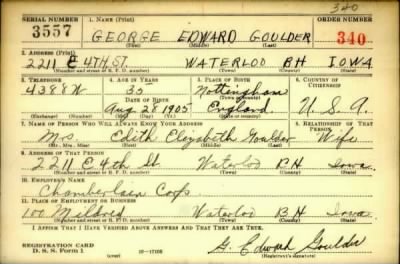 340
SERIAL NUMBER 1. NAME (Print) ORDER NUMBER
3557 GEORGE EDWARD GOULDER 340
(First) (Middle) (Last)
2. ADDRESS (Print)
2211 E 4TH ST. WATERLOO BH IOWA
(Number and street or R. F. D. number) (Town) (County) (State)
3. TELEPHONE 4. AGE IN YEARS 5. PLACE OF BIRTH 6. COUNTRY OF CITIZENSHIP
4388W 35 Nottingham
DATE OF BIRTH (Town or county)
Aug. 28 1905 England U.S.A.
(Exchange) (Number) (Mo.) (Day) (Yr.) (State or country)
7. NAME OF PERSON WHO WILL ALWAYS KNOW YOUR ADDRESS 8. RELATIONSHIP OF THAT PERSON
Mrs. Edith Elizabeth Goulder Wife
(Mr., Mrs., Miss) (First) (Middle) (Last)
9. ADDRESS OF THAT PERSON
2211 E 4th St Waterloo BH Iowa
(Number and street or R. F. D. number) (Town) (County) (State)
10. EMPLOYER'S NAME
Chamberlain Corp.
11. PLACE OF EMPLOYMENT OR BUSINESS
100 Mildred Waterloo BH Iowa
(Number and street or R. F. D. number) (Town) (County) (State)
I AFFIRM THAT I HAVE VERIFIED ABOVE ANSWERS AND THAT THEY ARE TRUE.
G. Edward Goulder
REGISTRATION CARD
D. S. S. Form 1 (over) 16—17105 (Registrant's signature)